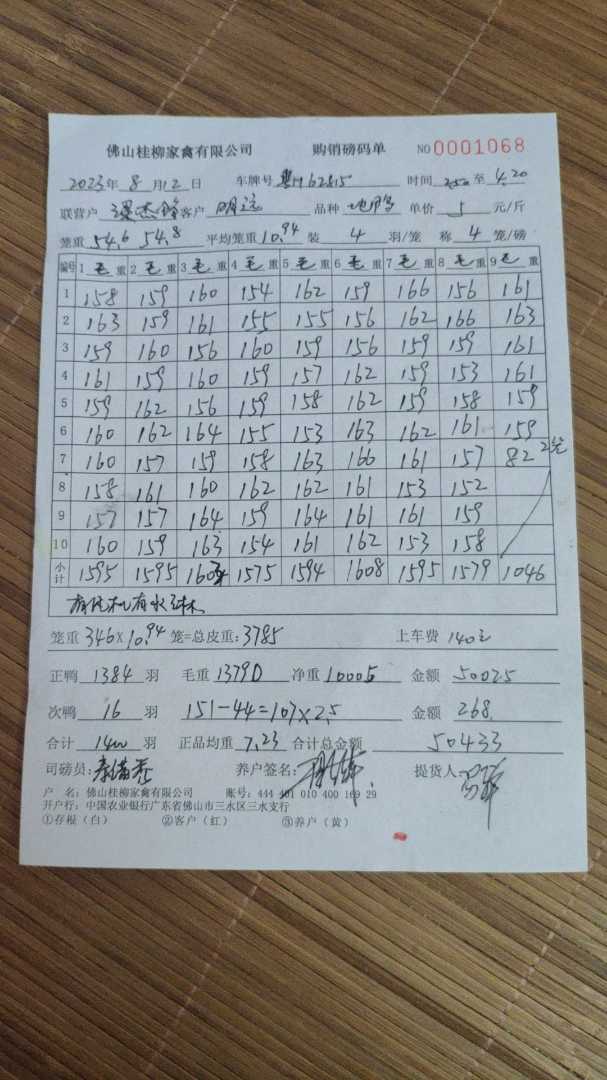 佛山桂柳家禽有限公司 购销磅码单 NO 0001068
2023年 8 月 12 日 车牌号 粤H62815 时间 250 至 4.20
联营户 客户 明远 品种 单价 5 元/斤
笼重 54.6 54.8 平均笼重 10.94 装 4 羽/笼 称 4 笼/磅
编号 1 毛 重 2 毛 重 3 毛 重 4 毛 重 5 毛 重 6 毛 重 7 毛 重 8 毛 重 9 毛 重
1 158 159 160 154 162 159 166 156 161
2 163 159 161 155 155 156 162 166 163
3 159 160 156 160 159 156 159 159 161
4 161 159 160 159 157 162 159 153 161
5 159 162 156 159 158 162 159 158 159
6 160 162 164 155 153 163 162 161 159
7 160 157 159 158 163 166 161 157 82 2笼
8 158 161 160 162 162 161 153 152
9 157 157 164 159 164 161 161 159
10 160 159 163 154 161 162 153 158
小计 1595 1595 1603 1575 1594 1608 1595 1579 1046
笼重 346 X 10.94 笼=总皮重: 3785 上车费 140元
正鸭 1384 羽 毛重 13790 净重 10005 金额 50025
次鸭 16 羽 151-44=107×2.5 金额 268
合计 1400 羽 正品均重 7.23 合计总金额 50433
司磅员: 养户签名: 提货人
户 名: 佛山桂柳家禽有限公司 账号: 444 401 010 400 169 29
开户行: 中国农业银行广东省佛山市三水区三水支行
①存根（白） ②客户（红） ③养户（黄）